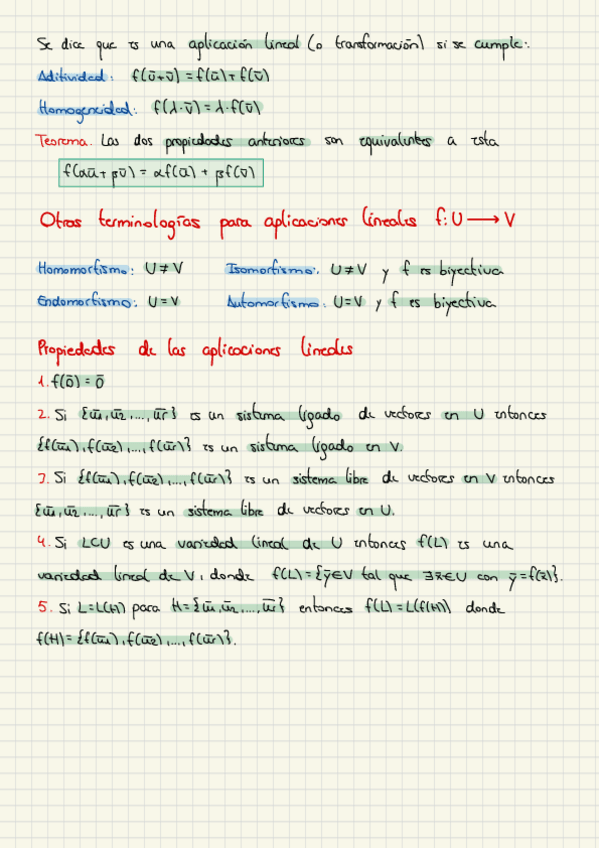 Se dice que es una aplicación lineal (o transformación) si se cumple:
Aditividad: f(ū+v̄) = f(ū)+f(v̄)
Homogeneidad: f(λ·v̄) = λ·f(v̄)
Teorema. Las dos propiedades anteriores son equivalentes a esta
f(αū+βv̄) = αf(ū) + βf(v̄)
Otras terminologías para aplicaciones lineales f: U → V
Homomorfismo: U≠V Isomorfismo: U≠V y f es biyectiva
Endomorfismo: U=V Automorfismo: U=V y f es biyectiva
Propiedades de las aplicaciones lineales
1. f(ō) = ō
2. Si {ū1, ū2, ..., ūr} es un sistema ligado de vectores en U entonces
{f(ū1), f(ū2), ..., f(ūr)} es un sistema ligado en V.
3. Si {f(ū1), f(ū2), ..., f(ūr)} es un sistema libre de vectores en V entonces
{ū1, ū2, ..., ūr} es un sistema libre de vectores en U.
4. Si L⊂U es una variedad lineal de U entonces f(L) es una
variedad lineal de V, donde f(L)={ȳ∈V tal que ∃x̄∈U con ȳ=f(x̄)}.
5. Si L=L(H) para H={ū1, ū2, ..., ūr} entonces f(L)=L(f(H)) donde
f(H)={f(ū1), f(ū2), ..., f(ūr)}.